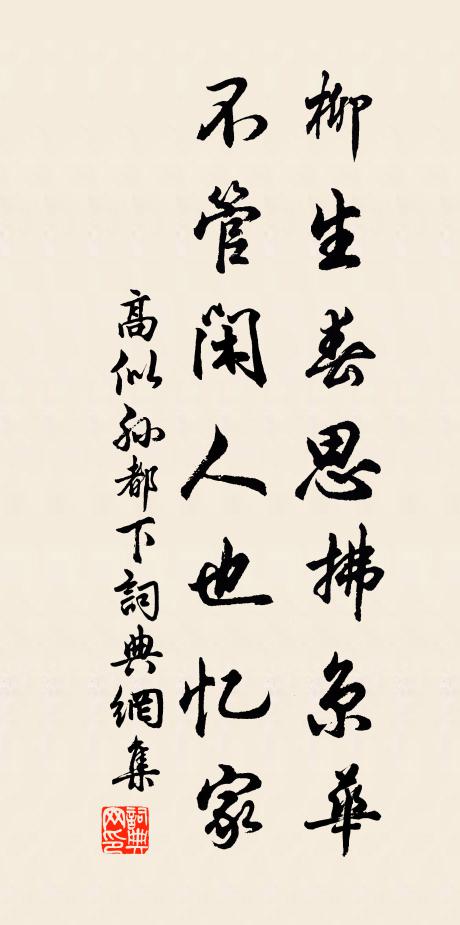 柳生春思拂京華
不管閑人也忆家
高似孫都下詞典網集
詞典网印